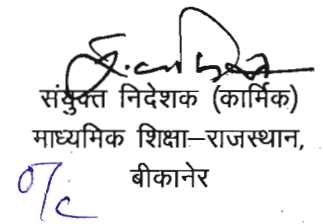 संयुक्त निदेशक (कार्मिक)
माध्यमिक शिक्षा–राजस्थान,
बीकानेर
O/c